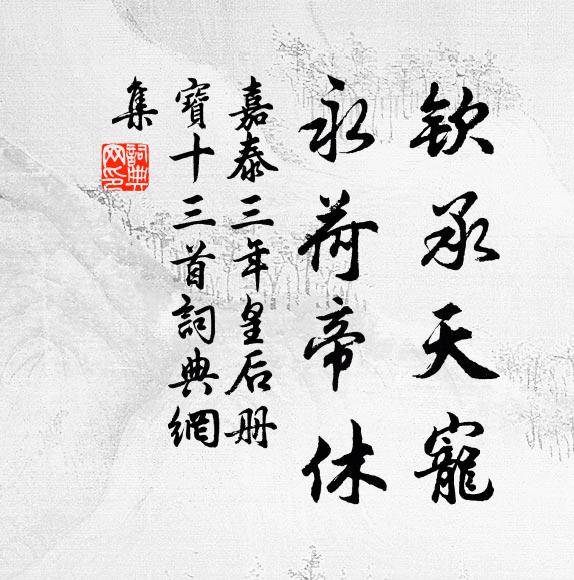 欽承天寵
永荷帝休
嘉泰三年皇后册
寶十三首詞典網
集
詞典
网印